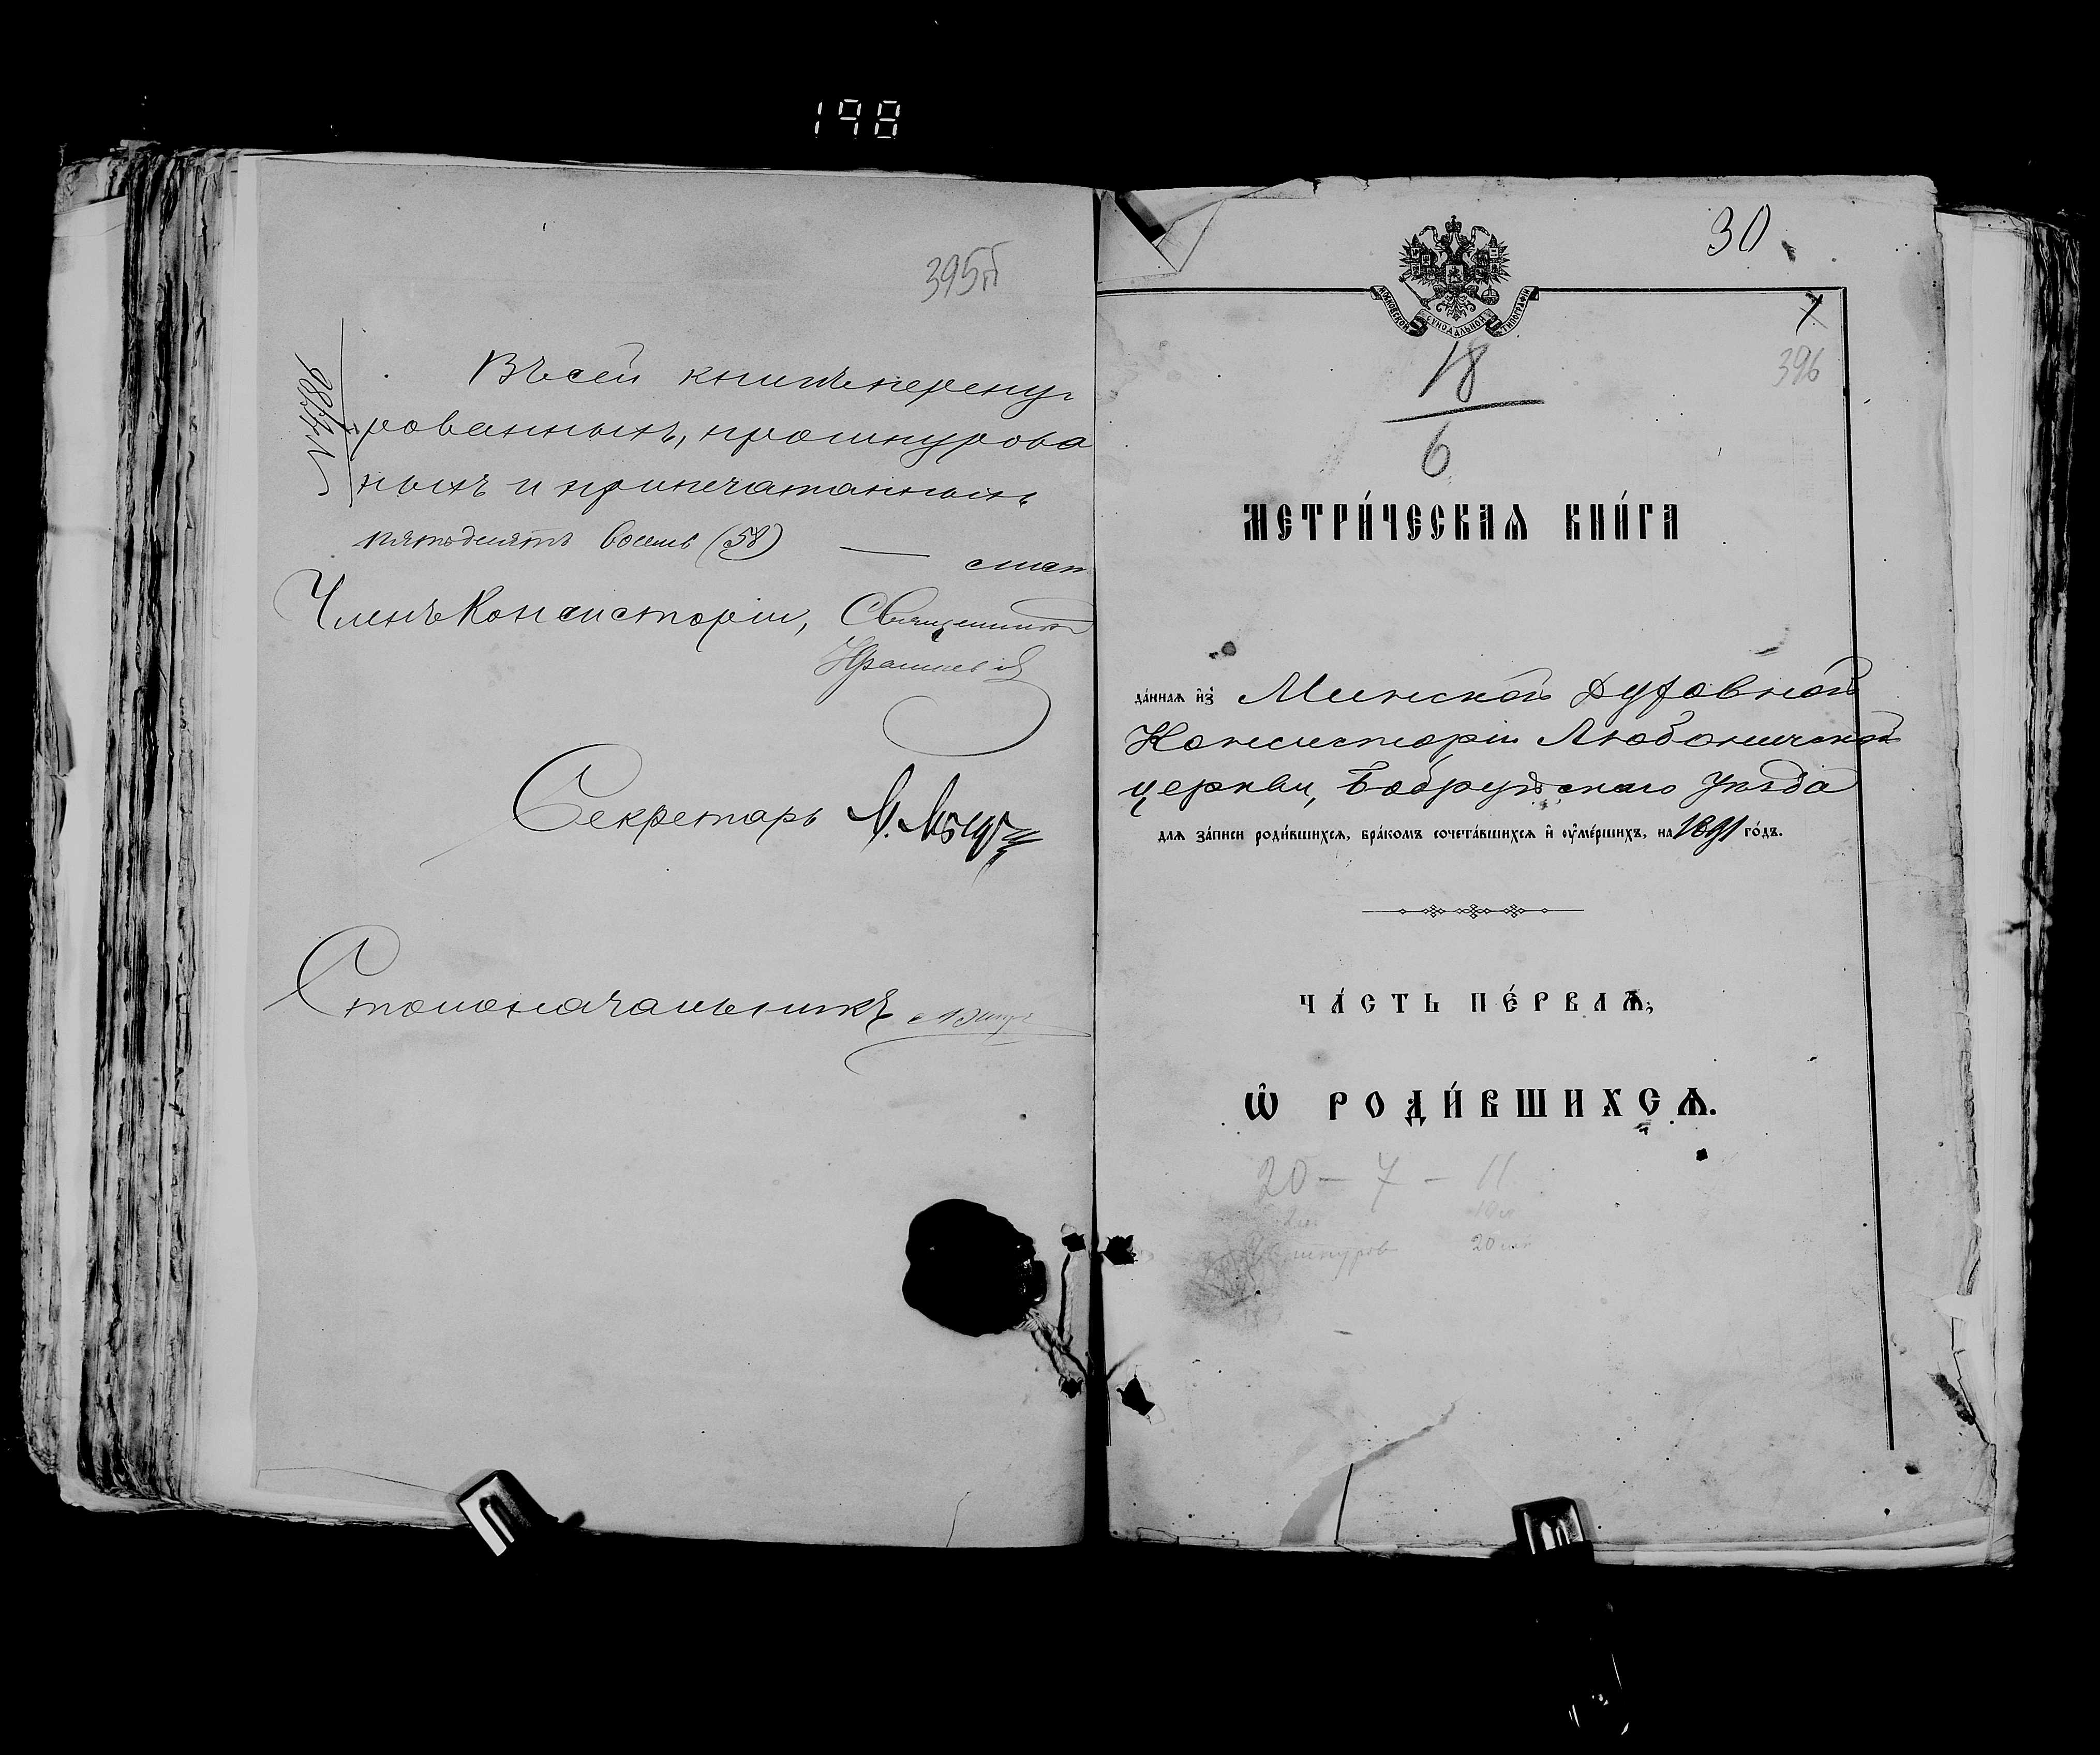 198
395об
Въ сей книгѣ перену-
рованныхъ, прошнурова
ныхъ и припечатанныхъ
пятьдесятъ восемь (58) — лист
Членъ Консисторіи, Священникъ
Секретарь
Столоначальникъ
30
МОСКОВСКОЙ СѴНОДАЛЬНОЙ ТИПОГРАФІИ
396
18
6
МЕТРИ́ЧЕСКАѦ КНИ́ГА
да́ннаѧ и҆з̾ Минской Духовной
Консисторіи Любоничской
церкви, Бобруйскаго уѣзда
длѧ за́писи роди́вшихсѧ, бра́комъ сочета́вшихсѧ и҆ оу҆ме́ршихъ, на 1891 го́дъ.
ЧА́СТЬ ПЕ́РВАѦ,
Ѡ҆ РОДИ́ВШИХСѦ.
20 — 7 — 11